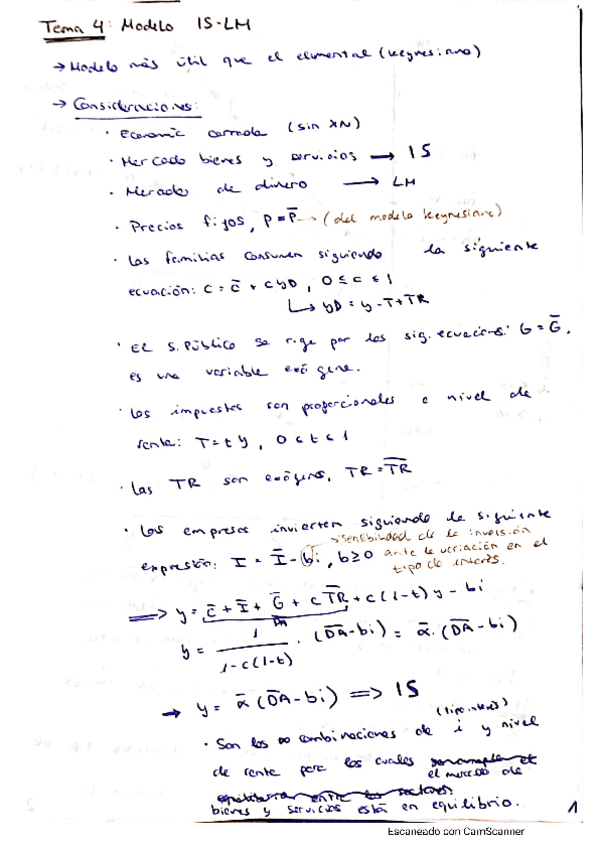 Tema 4: Modelo IS-LM
→ Modelo más útil que el elemental (keynesiano)
→ Consideraciones:
· Economía cerrada (sin XN)
· Mercado bienes y servicios → IS
· Mercado de dinero → LM
· Precios fijos, p = P̄ → (del modelo keynesiano)
· Las familias consumen siguiendo la siguiente
ecuación: C = C̄ + c YD, 0 ≤ c ≤ 1
↳ YD = y - T + TR
· El S. Público se rige por las sig. ecuaciones: G = Ḡ,
es una variable exógena.
· Los impuestos son proporcionales a nivel de
renta: T = t y, 0 < t < 1
· Las TR son exógenas, TR = T̄R̄
· Las empresas invierten siguiendo la siguiente
expresión: I = Ī - bi, b ≥ 0
→ sensibilidad de la inversión
ante la variación en el
tipo de interés.
⟹ y = C̄ + Ī + Ḡ + c T̄R̄ + c(1-t) y - bi
D̄Ā
y = 1 / 1-c(1-t) · (D̄Ā - bi) = ᾱ · (D̄Ā - bi)
→ y = ᾱ (D̄Ā - bi) ⟹ IS
(tipo interés)
· Son las ∞ combinaciones de i y nivel
de renta para los cuales
el mercado de
bienes y servicios está en equilibrio.
1
Escaneado con CamScanner